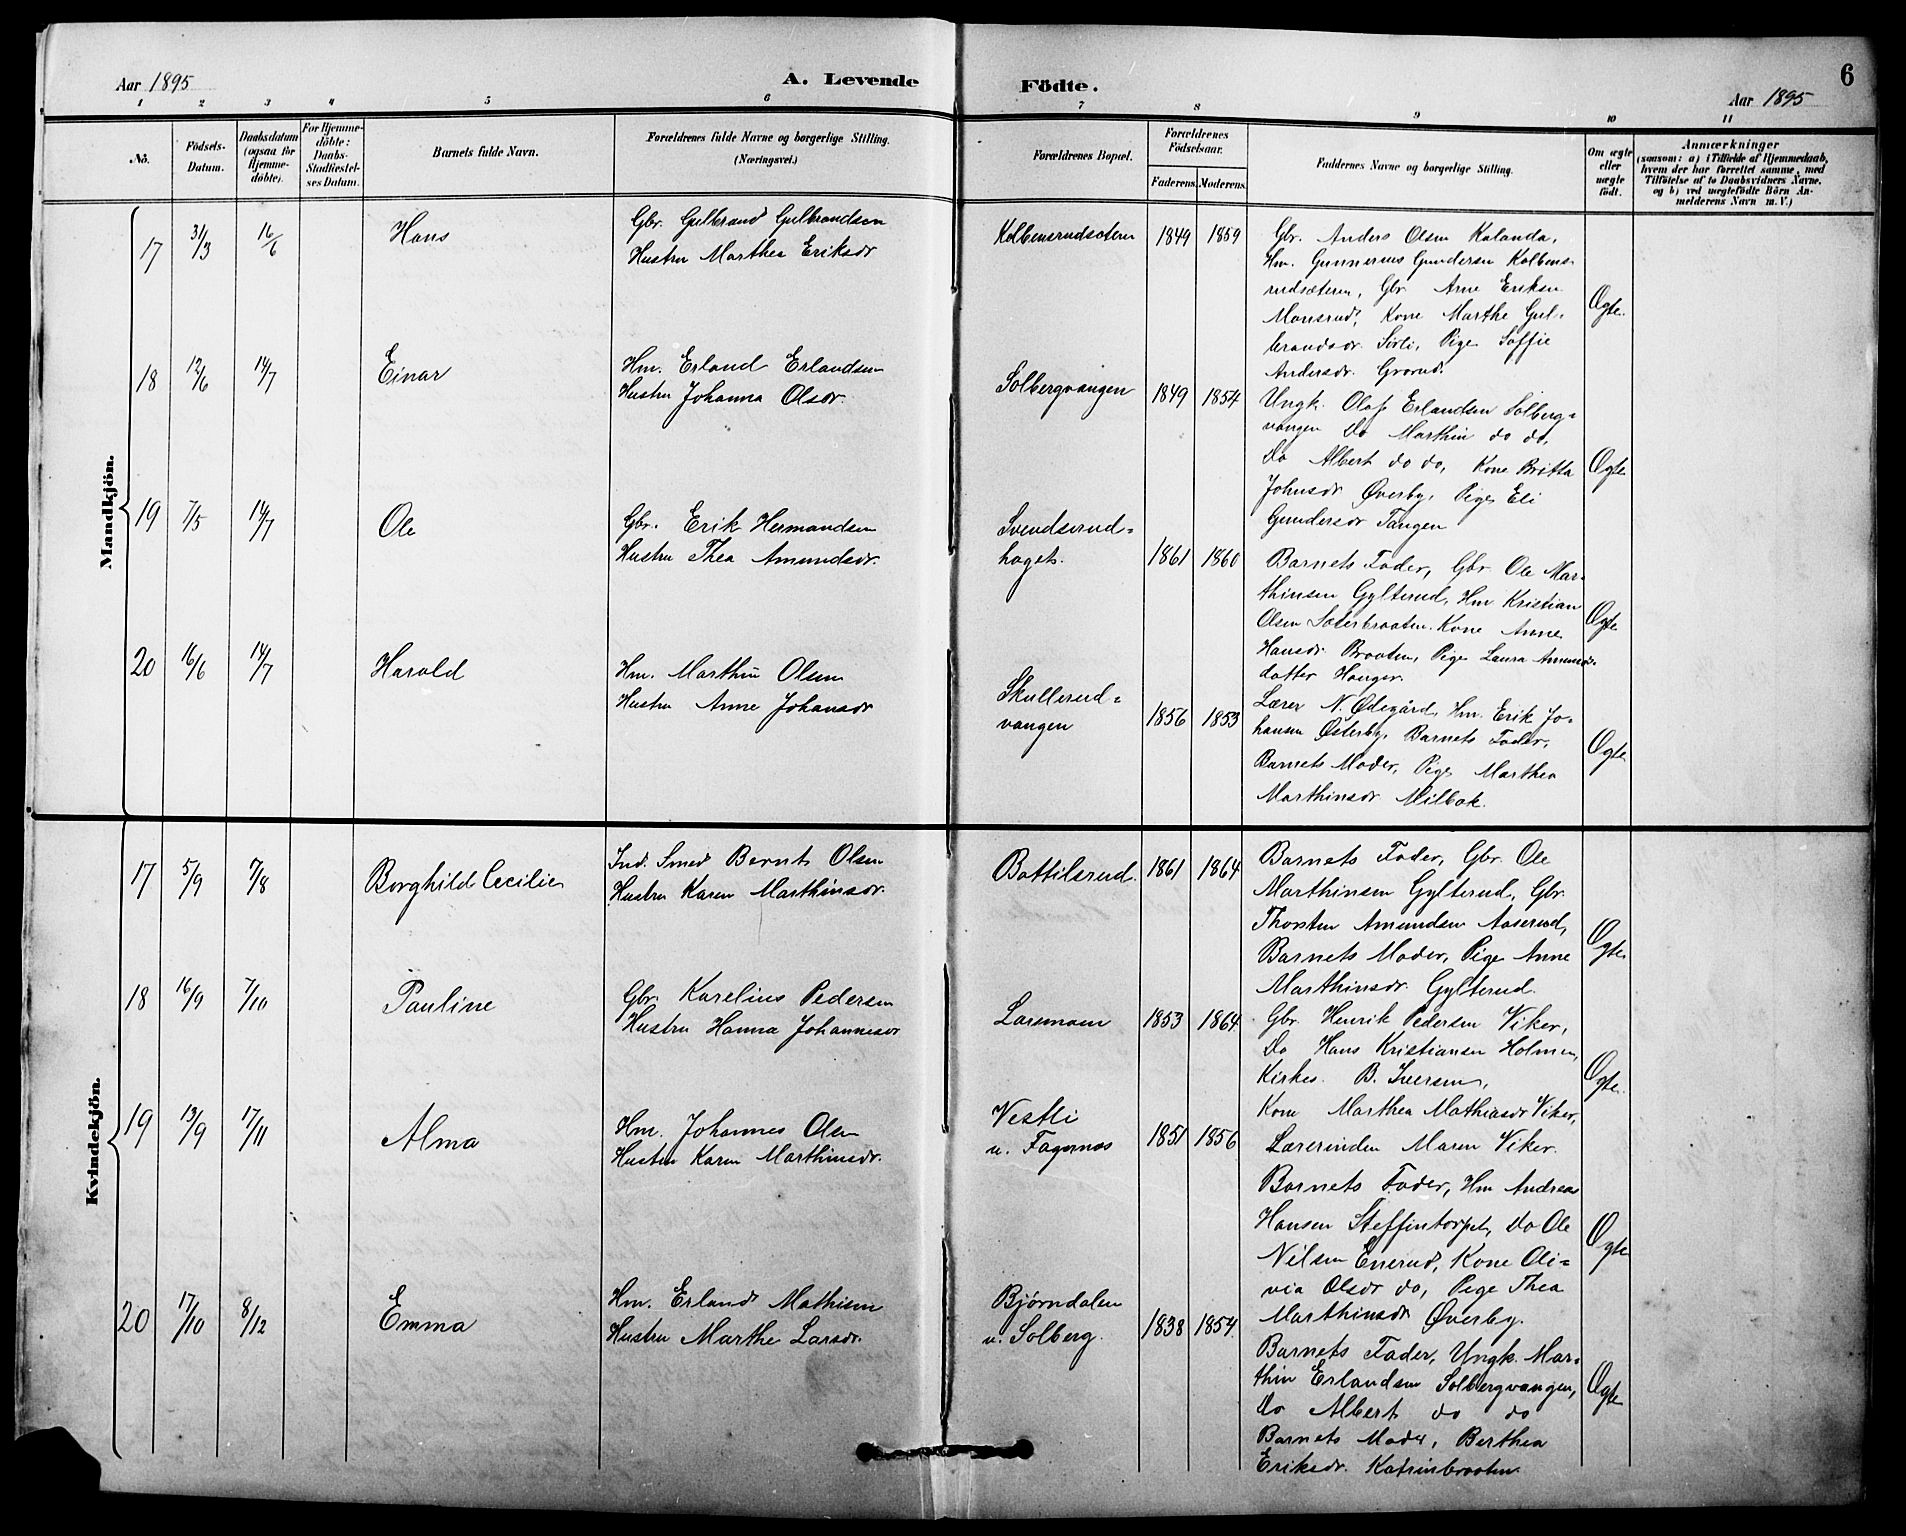 Aar 1895
A. Levende
Födte.
6
Aar 1895
1 2 3 4 5 6 7 8 9 10 11
No.
Födsels-
Datum.
Daabsdatum
(ogsaa for
Hjemme-
döbte).
For Hjemme-
döbte:
Daabs-
Stadfæstel-
ses Datum.
Barnets fulde Navn.
Forældrenes fulde Navne og borgerlige Stilling.
(Næringsvei.)
Forældrenes Bopæl.
Forældrenes
Födselsaar.
Faderens. Moderens.
Faddernes Navne og borgerlige Stilling.
Om ægte
eller
uægte
födt.
Anmærkninger
(saasom: a) i Tilfælde af Hjemmedaab,
hvem der har forrettet samme, med
Tilföielse af to Daabsvidners Navne,
og b) ved uægtefödte Börn An-
melderens Navn m. V.)
Mandkjön.
17 31/3 16/6 Hans
Gbr. Gulbrand Gulbrandsen
Hustru Marthea Eriksdr
Kolbensrudsæteren 1849 1859
Gbr. Anders Olsen Kalanda,
Hm. Gunnerius Gundersen Kolbens-
rudsæteren, Gbr Arne Eriksen
Monsrud, Kone Marthe Gul-
brandsdr. Sørli, Pige Soffie
Andersdr. Grorud.
Ægte.
18 12/6 14/7 Einar
Hm. Erland Erlandsen
Hustru Johanna Olsdr.
Solbergvangen 1849 1854
Ungk. Olaf Erlandsen Solberg-
vangen Do Marthin do do,
Do Albert do do, Kone Britta
Johnsdr Øverby, Pige Eli
Gundersdr Tangen
Ægte
19 7/5 14/7 Ole
Gbr. Erik Hermandsen
Hustru Thea Amundsdr.
Svendserud-
haget. 1861 1860
Barnets Fader, Gbr. Ole Mar-
thinsen Gylterud, Hm Kristian
Olsen Sæterbraaten. Kone Anne
Hansdr. Braaten, Pige Laura Amunds-
datter Hauger.
Ægte
20 16/6 14/7 Harald
Hm. Marthin Olsen
Hustru Anne Johansdr
Skullerud-
vangen 1856 1853
Lærer N. Ødegård, Hm. Erik Jo-
hansen Østerby, Barnets Fader,
Barnets Moder, Pige Marthea
Marthinsdr Milbak.
Ægte
Kvindekjön.
17 5/9 7/8 Borghild Cecilie
Ind. Smed Bernt Olsen
Hustru Karen Marthinsdr.
Bottilsrud. 1861 1864
Barnets Fader, Gbr. Ole
Marthinsen Gylterud, Gbr.
Thorsten Amundsen Aaserud,
Barnets Moder, Pige Anne
Marthinsdr. Gylterud.
Ægte
18 16/9 7/10 Pauline
Gbr. Karelius Pedersen
Hustru Hanna Johannesdr
Larsmoen 1853 1864.
Gbr. Henrik Pedersen Viker,
Do Hans Kristiansen Holmen,
Kirkes. B. Iversen,
Kone Marthea Mathiasdr Viker,
Lærerinden Maren Viker.
Ægte.
19 13/9 17/11 Alma
Hm. Johannes Olsen
Hustru Karen Marthinsdr.
Vestli
u. Fagernæs 1851 1856
Barnets Fader, Hm Andreas
Hansen Steffintorpet, Do Ole
Nilsen Enerud, Kone Oli-
via Olsdr do, Pige Thea
Marthinsdr Øverby.
Ægte
20 17/10 8/12 Emma
Hm. Erland Mathisen
Hustru Marthe Larsdr.
Bjørndalen
u. Solberg. 1838 1854.
Barnets Fader, Ungk. Mar-
thin Erlandsen Solbergvangen,
Do Albert do do
Barnets Moder, Berthea
Eriksdr. Katrinbraaten.
Ægte